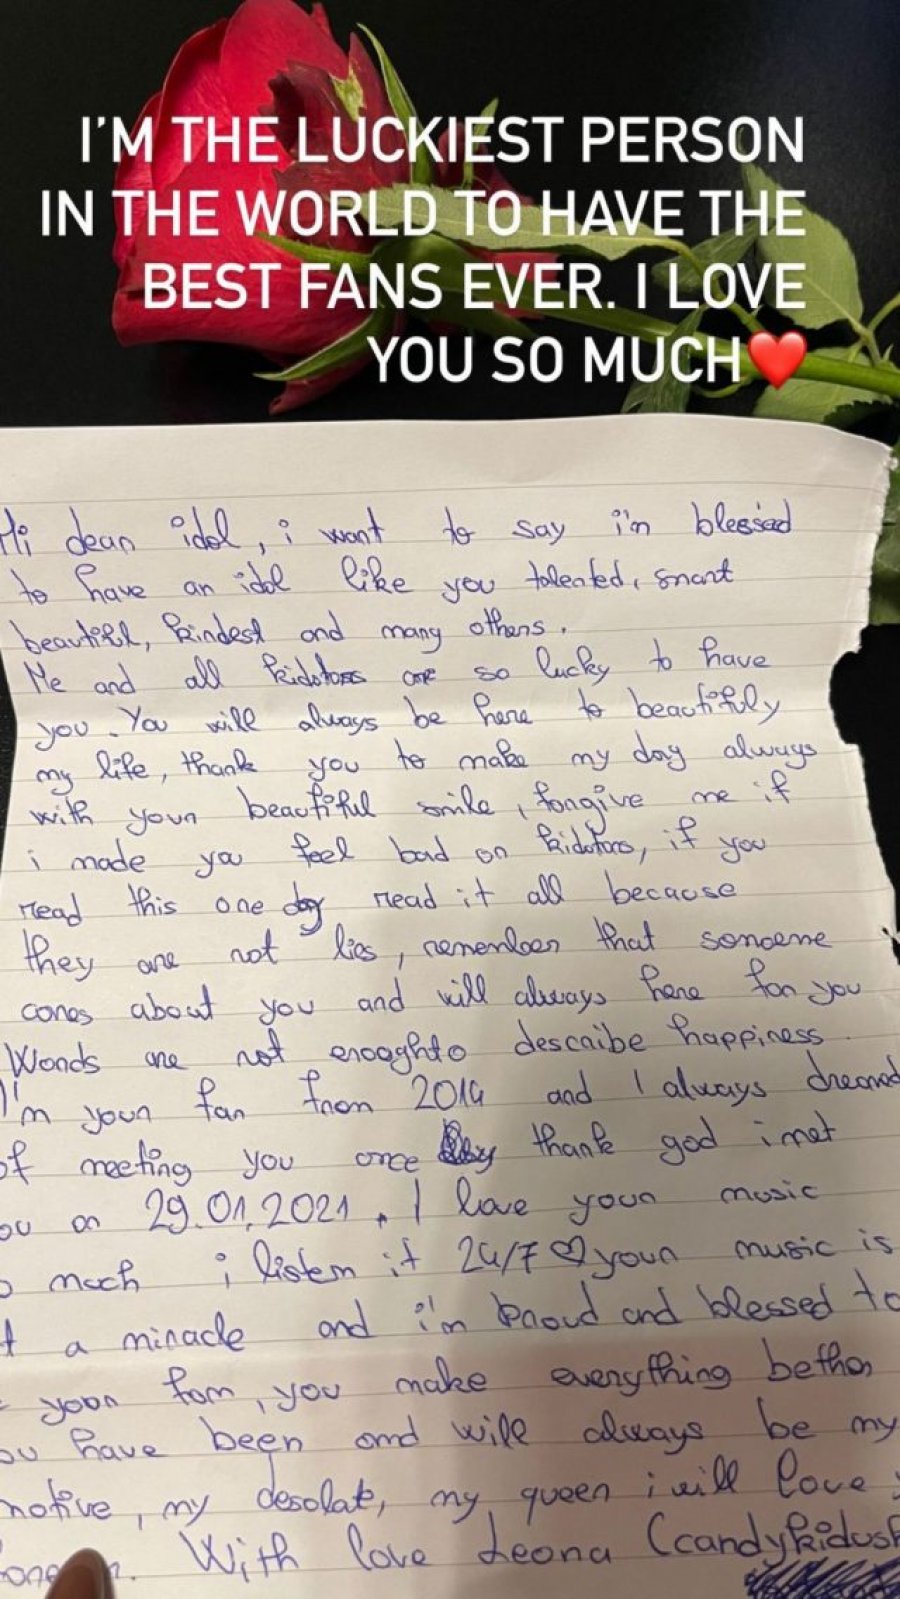 I'M THE LUCKIEST PERSON
IN THE WORLD TO HAVE THE
BEST FANS EVER. I LOVE
YOU SO MUCH❤️
Hi dear idol, i want to say i'm blessed
to have an idol like you talented, smart
beautiful, kindest and many others.
Me and all kidstars are so lucky to have
you. You will always be here to beautifuly
my life, thank you to make my day always
with your beautiful smile, forgive me if
i made you feel bad on kidstars, if you
read this one day read it all because
they are not lies, remember that someone
cares about you and will always here for you
Words are not enoughto describe happiness
I'm your fan from 2014 and I always dreamed
of meeting you once thank god i met
ou on 29.01.2021. I love your music
o much i listen it 24/7 ♡ your music is
a miracle and i'm proud and blessed to
your fam, you make everything bether
ou have been and will always be my
motive, my desolate, my queen i will love
With love Leona (candykidush